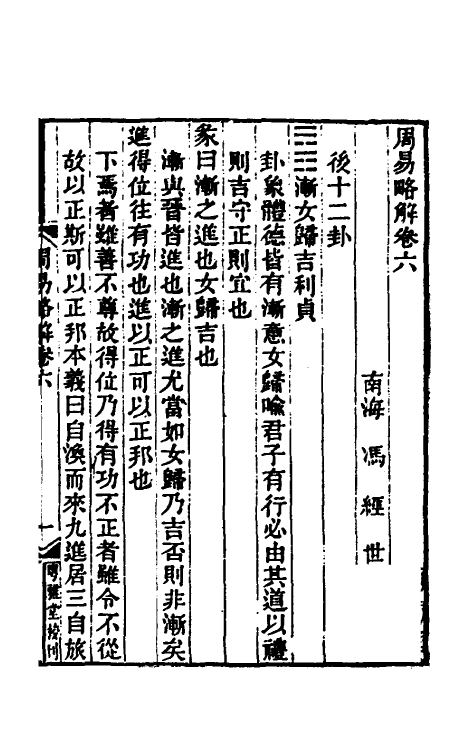 周易略解卷六
南海 馮經 世
後十二卦
䷴漸女歸吉利貞
卦象體德皆有漸意女歸喻君子有行必由其道以禮
則吉守正則宜也
彖曰漸之進也女歸吉也
漸與晉皆進也漸之進尤當如女歸乃吉否則非漸矣
進得位往有功也進以正可以正邦也
下焉者雖善不尊故得位乃得有功不正者雖令不從
故以正斯可以正邦本義曰自渙而來九進居三自旅
周易略解卷六 一 粵雅堂校刊